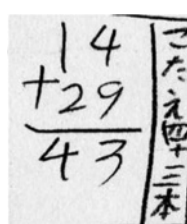 14
+29
43
こたえ四十三本